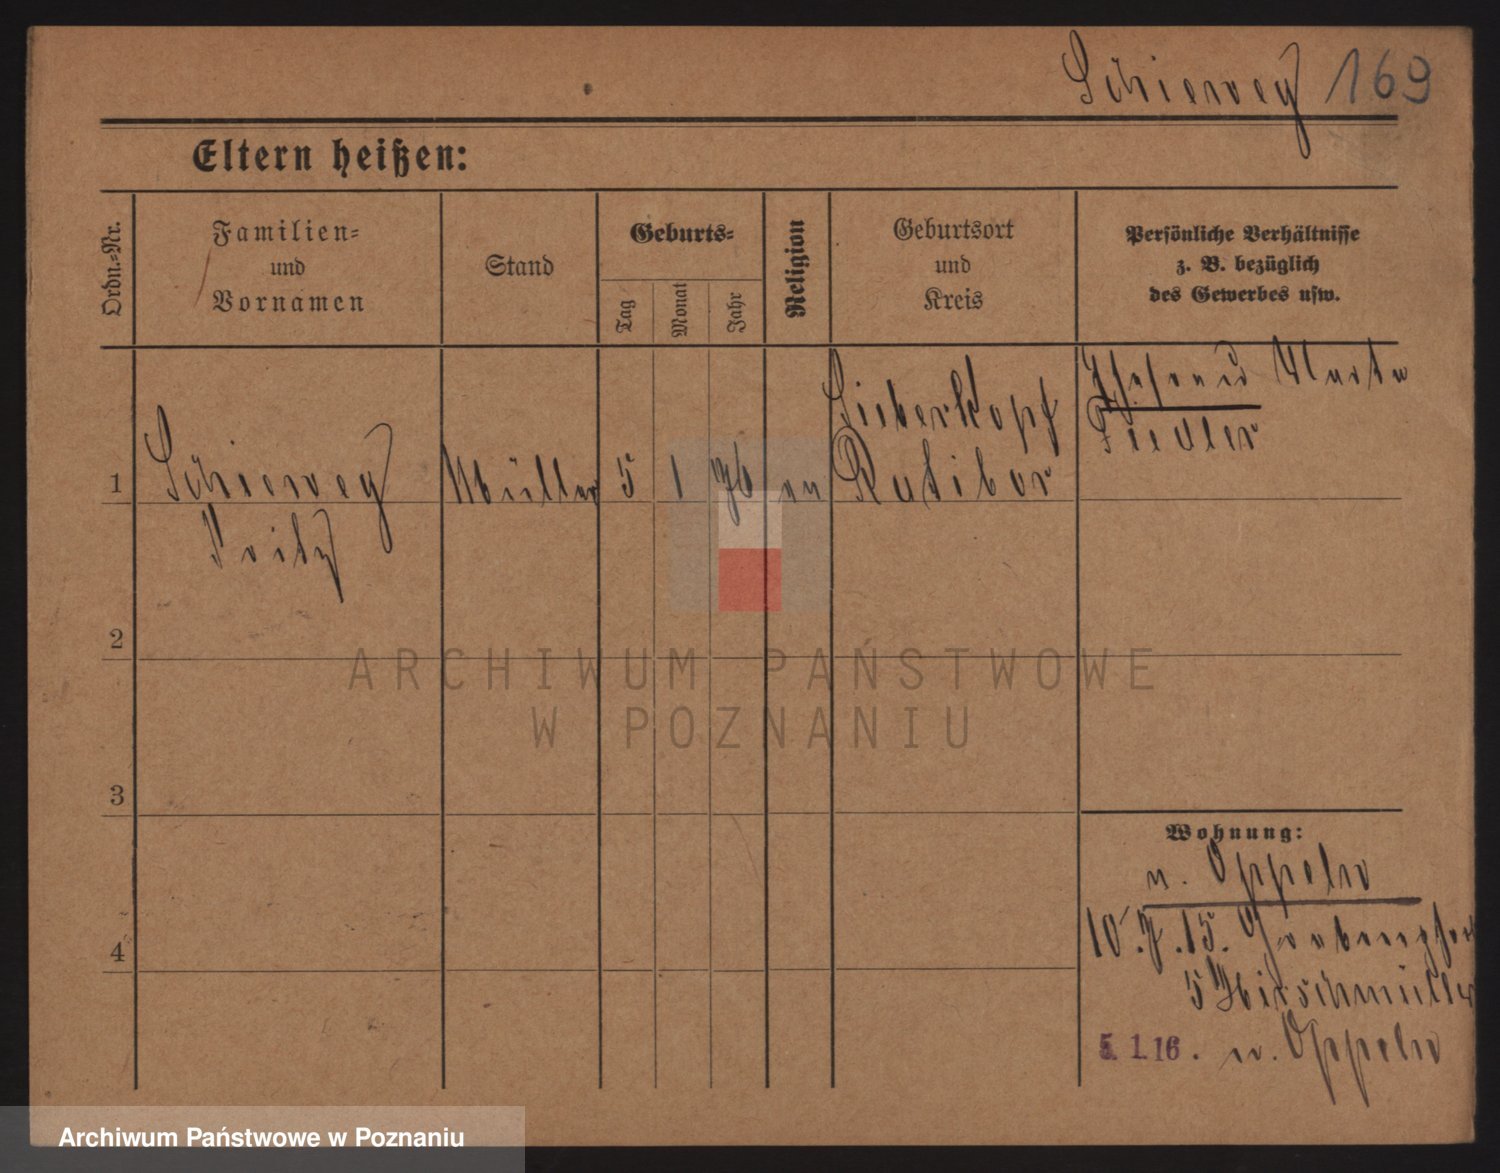 Schierweg 169
Eltern heißen:
Ordn.-Nr.
Familien-
und
Vornamen
Stand
Geburts-
Tag
Monat
Jahr
Religion
Geburtsort
und
Kreis
Persönliche Verhältnisse
z. B. bezüglich
des Gewerbes usw.
1
Schierweg
Fritz
Müller
5
1
76
ev
Sieberkopf
Ratibor
Ehefrau Marta
Fiedler
2
3
4
Wohnung:
n. Oppeln
10.7.15. Grabengstr
5 Hirschmüller
5. 1.16. n. Oppeln
ARCHIWUM PAŃSTWOWE
W POZNANIU
Archiwum Państwowe w Poznaniu